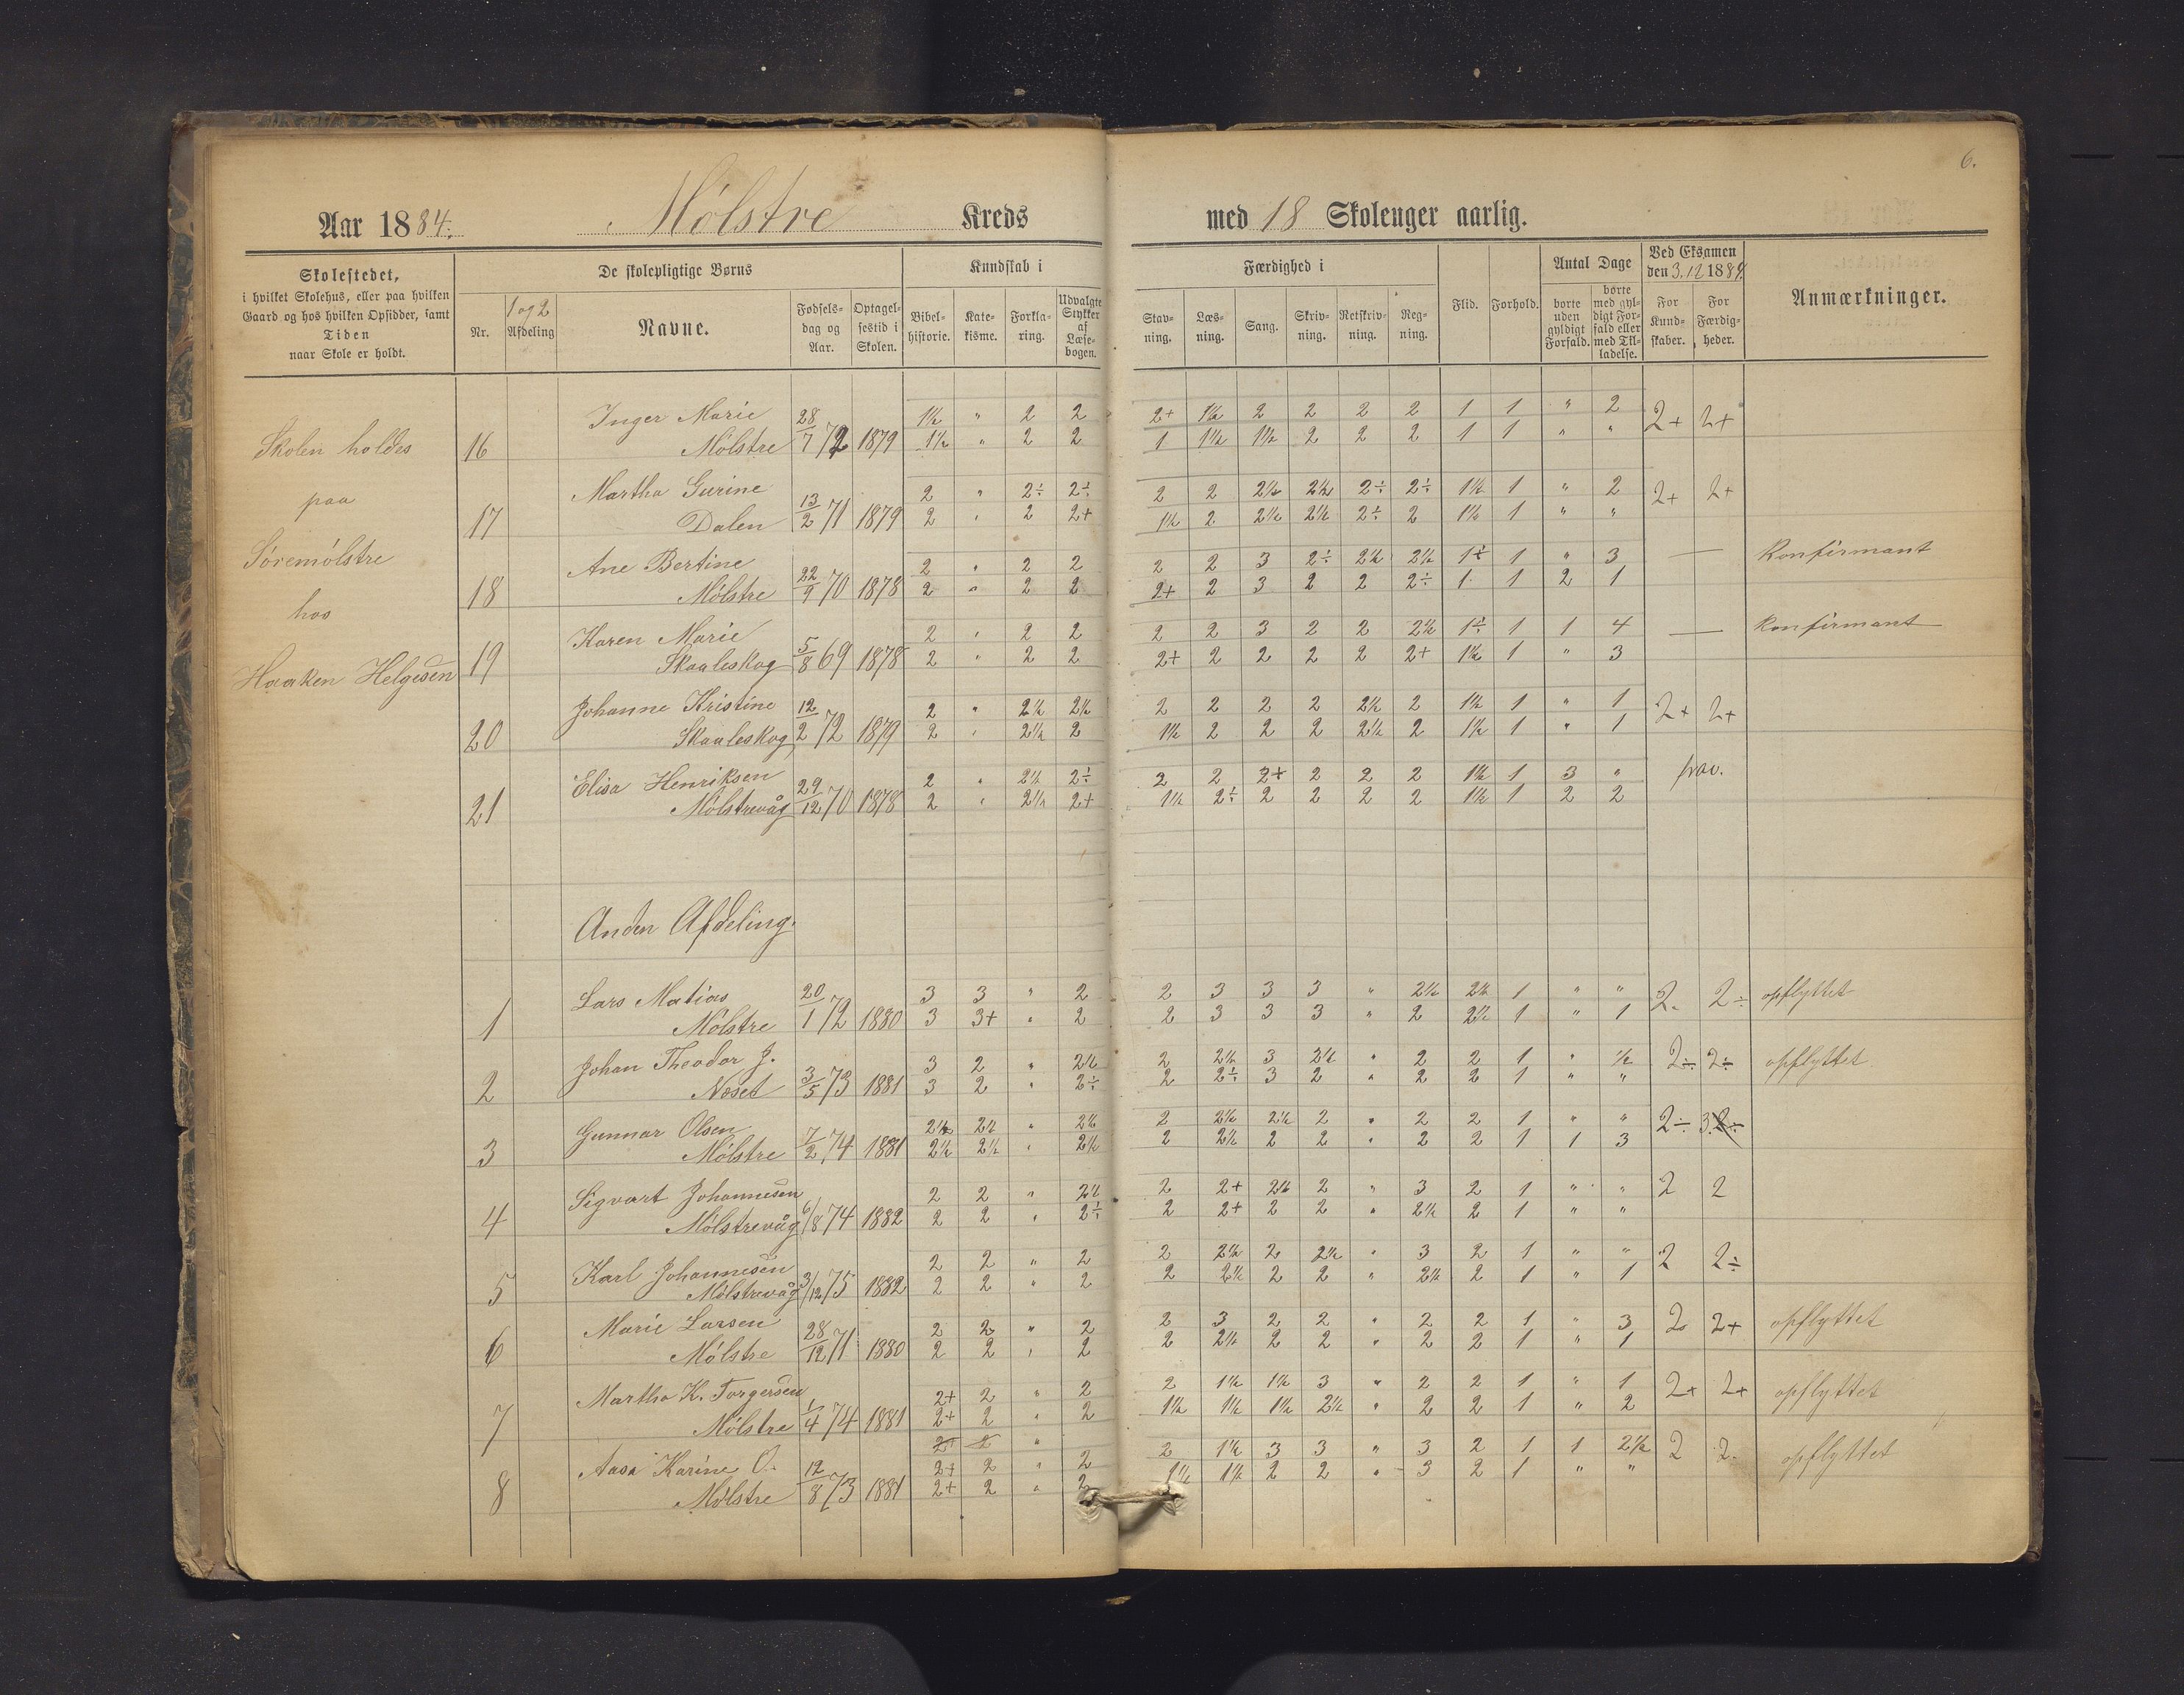 6.
Aar 1884. Mølstre Kreds med 18 Skolenger aarlig.
Skolestedet,
i hvilket Skolehus, eller paa hvilken
Gaard og hos hvilken Opsidder, samt
Tiden
naar Skole er holdt.
De skolepligtige Børns
Nr.
1 og 2
Afdeling
Navne.
Fødsels-
dag og
Aar.
Optagel-
sestid i
Skolen.
Kundskab i
Bibel-
historie.
Kate-
kisme.
Forkla-
ring.
Udvalgte
Stykker
af
Læse-
bogen.
Færdighed i
Stav-
ning.
Læs-
ning.
Sang.
Skriv-
ning.
Retskriv-
ning.
Reg-
ning.
Flid.
Forhold.
Antal Dage
borte
uden
gyldigt
Forfald.
borte
med gyl-
digt For-
fald eller
med Til-
ladelse.
Ved Eksamen
den 3.12 1884.
For
Kund-
skaber.
For
Færdig-
heder.
Anmærkninger.
Skolen holdes
paa
Søremølstre
hos
Haaken Helgesen
Inger Marie 28 1½ " 2 2 2+ 1½ 2 2 2 2 1 1 " 2 2+ 2+
16 Mølstre 7/72 1879 1½ " 2 2 1 1½ 1½ 2 2 2 1 1 " "
Martha Gurine 13 2 " 2÷ 2÷ 2 2 2½ 2½ 2÷ 2÷ 1½ 1 " 2 2+ 2+
17 Dalen 2/71 1879 2 " 2 2+ 1½ 2 2½ 2½ 2÷ 2 1½ 1 " "
Ane Bertine 22 2 " 2 2 2 2 3 2÷ 2½ 2½ 1÷ 1 " 3 — Konfirmant
18 Mølstre 9/70 1878 2 " 2 2 2+ 2 3 2 2 2÷ 1 1 2 1
Karen Marie 5 2 " 2 2 2 2 3 2 2 2½ 1÷ 1 1 4 — Konfirmant
19 Skaaleskog 8/69 1878 2 " 2 2 2+ 2 2 2 2 2+ 1½ 1 " 3
Johanne Kristine 12 2 " 2½ 2½ 2 2 2 2 2½ 2 1½ 1 " 1 2+ 2+
20 Skaaleskog 2/72 1879 2 " 2½ 2 1½ 2 2 2 2½ 2 1½ 1 " 1
Elisa Henriksen 29 2 " 2½ 2÷ 2 2 2+ 2 2 2 1½ 1 3 " frav.
21 Mølstrevåg 12/70 1878 2 " 2½ 2+ 1½ 2÷ 2 2 2 2 1½ 1 2 2
Anden Afdeling.
Lars Matias 20 3 3 " 2 2 3 3 3 " 2½ 2½ 1 " " 2. 2÷ opflyttet
1 Mølstre 1/72 1880 3 3+ " 2 2 3 3 3 " 2 2½ 1 " 1
Johan Theodor J. 3 3 2 " 2½ 2 2½ 3 2½ " 2 2 1 " ½ 2÷ 2÷ opflyttet
2 Noset 5/73 1881 3 2 " 2÷ 2 2÷ 3 2 " 2 2 1 " "
Gunnar Olsen 7 2½ 2½ " 2½ 2 2½ 2½ 2 " 2 2 1 " " 2÷ 3.
3 Mølstre 2/74 1881 2½ 2½ " 2½ 2 2½ 2 2 " 2 2 1 1 3
Sigvart Johannesen 6 2 2 " 2½ 2 2+ 2½ 2 " 3 2 1 " " 2 2
4 Mølstrevåg 8/74 1882 2 2 " 2÷ 2 2+ 2 2 " 2½ 2 1 " "
Karl Johannesen 3 2 2 " 2 2 2½ 2 2½ " 3 2 1 " " 2 2÷
5 Mølstrevåg 12/75 1882 2 2 " 2 2 2½ 2 2 " 2½ 2 1 " 1
Marie Larsen 28 2 2 " 2 2 3 2 2 " 2 2 1 " 3 2 2+ opflyttet
6 Mølstre 12/71 1880 2 2 " 2 2 2½ 2 2 " 2 2 1 " 1
Martha K. Torgersen 1 2+ 2 " 2 2 1½ 1½ 3 " 2 2 1 " 1 2+ 2+ opflyttet
7 Mølstre 4/74 1881 2+ 2 " 2 1½ 1½ 1½ 2½ " 2 2 1 " 2
2+ 2 "
Aasa Karine O. 12 2+ 2 " 2 2 1½ 3 3 " 3 2 1 1 2½ 2 2. opflyttet
8 Mølstre 8/73 1881 2+ 2 " 2 1½ 1½ 2 2 " 3 2 1 " "